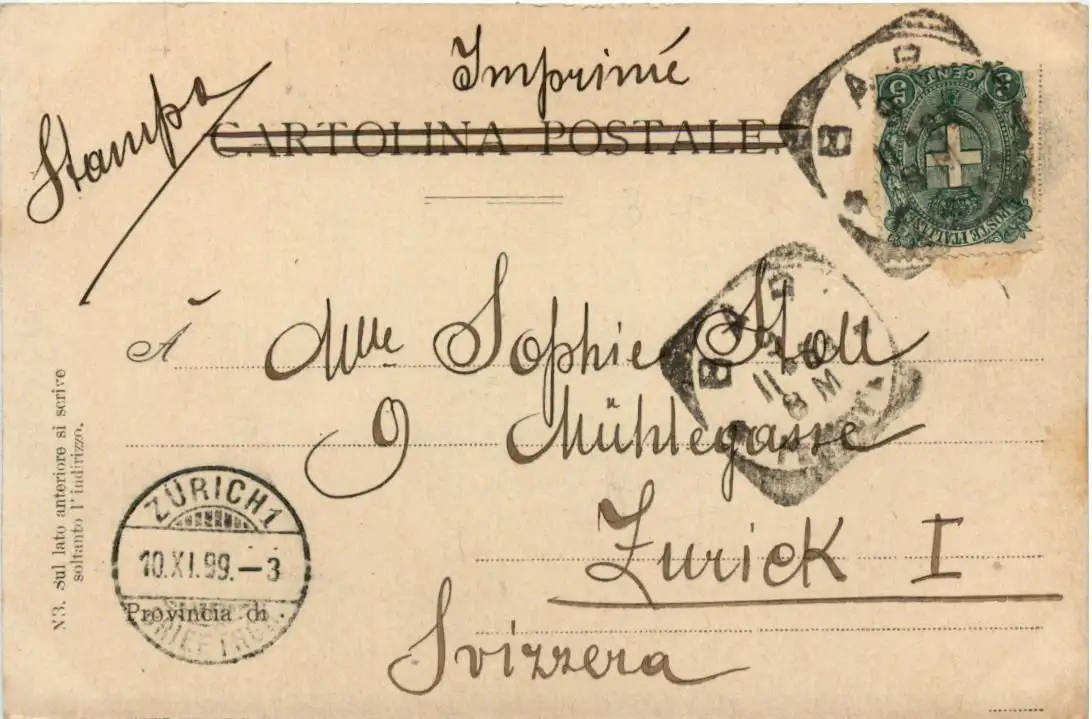 Imprimé
Stampa
CARTOLINA POSTALE.
5 CENT. 5
POSTE ITALIANE
BARI
BARI
11
8 M
A Mlle Sophie Stoll
9 Mühlegasse
Zurick I
Svizzera
ZÜRICH 1
10.XI.99.-3
BRIEFTRÄGER
Provincia di
NB. Sul lato anteriore si scrive
soltanto l'indirizzo.